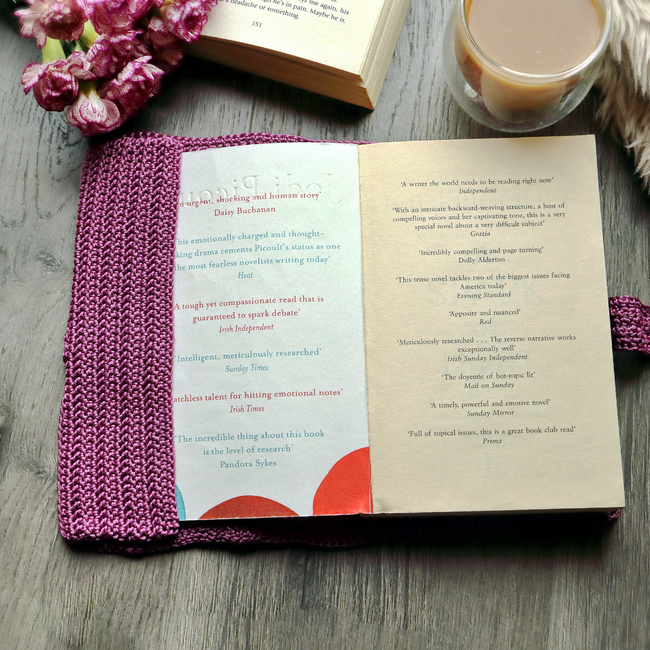 ys me again, his
gh he's in pain. Maybe he is.
a headache or something.
151
Jodi Picou
n urgent, shocking and human story'
Daisy Buchanan
his emotionally charged and thought-
king drama cements Picoult's status as one
the most fearless novelists writing today'
Heat
A tough yet compassionate read that is
guaranteed to spark debate'
Irish Independent
'Intelligent, meticulously researched'
Sunday Times
atchless talent for hitting emotional notes'
Irish Times
'The incredible thing about this book
is the level of research'
Pandora Sykes
'A writer the world needs to be reading right now'
Independent
'With an intricate backward-weaving structure, a host of
compelling voices and her captivating tone, this is a very
special novel about a very difficult subject'
Grazia
'Incredibly compelling and page turning'
Dolly Alderton
'This tense novel tackles two of the biggest issues facing
America today'
Evening Standard
'Apposite and nuanced'
Red
'Meticulously researched . . . The reverse narrative works
exceptionally well'
Irish Sunday Independent
'The doyenne of hot-topic lit'
Mail on Sunday
'A timely, powerful and emotive novel'
Sunday Mirror
'Full of topical issues, this is a great book club read'
Prima